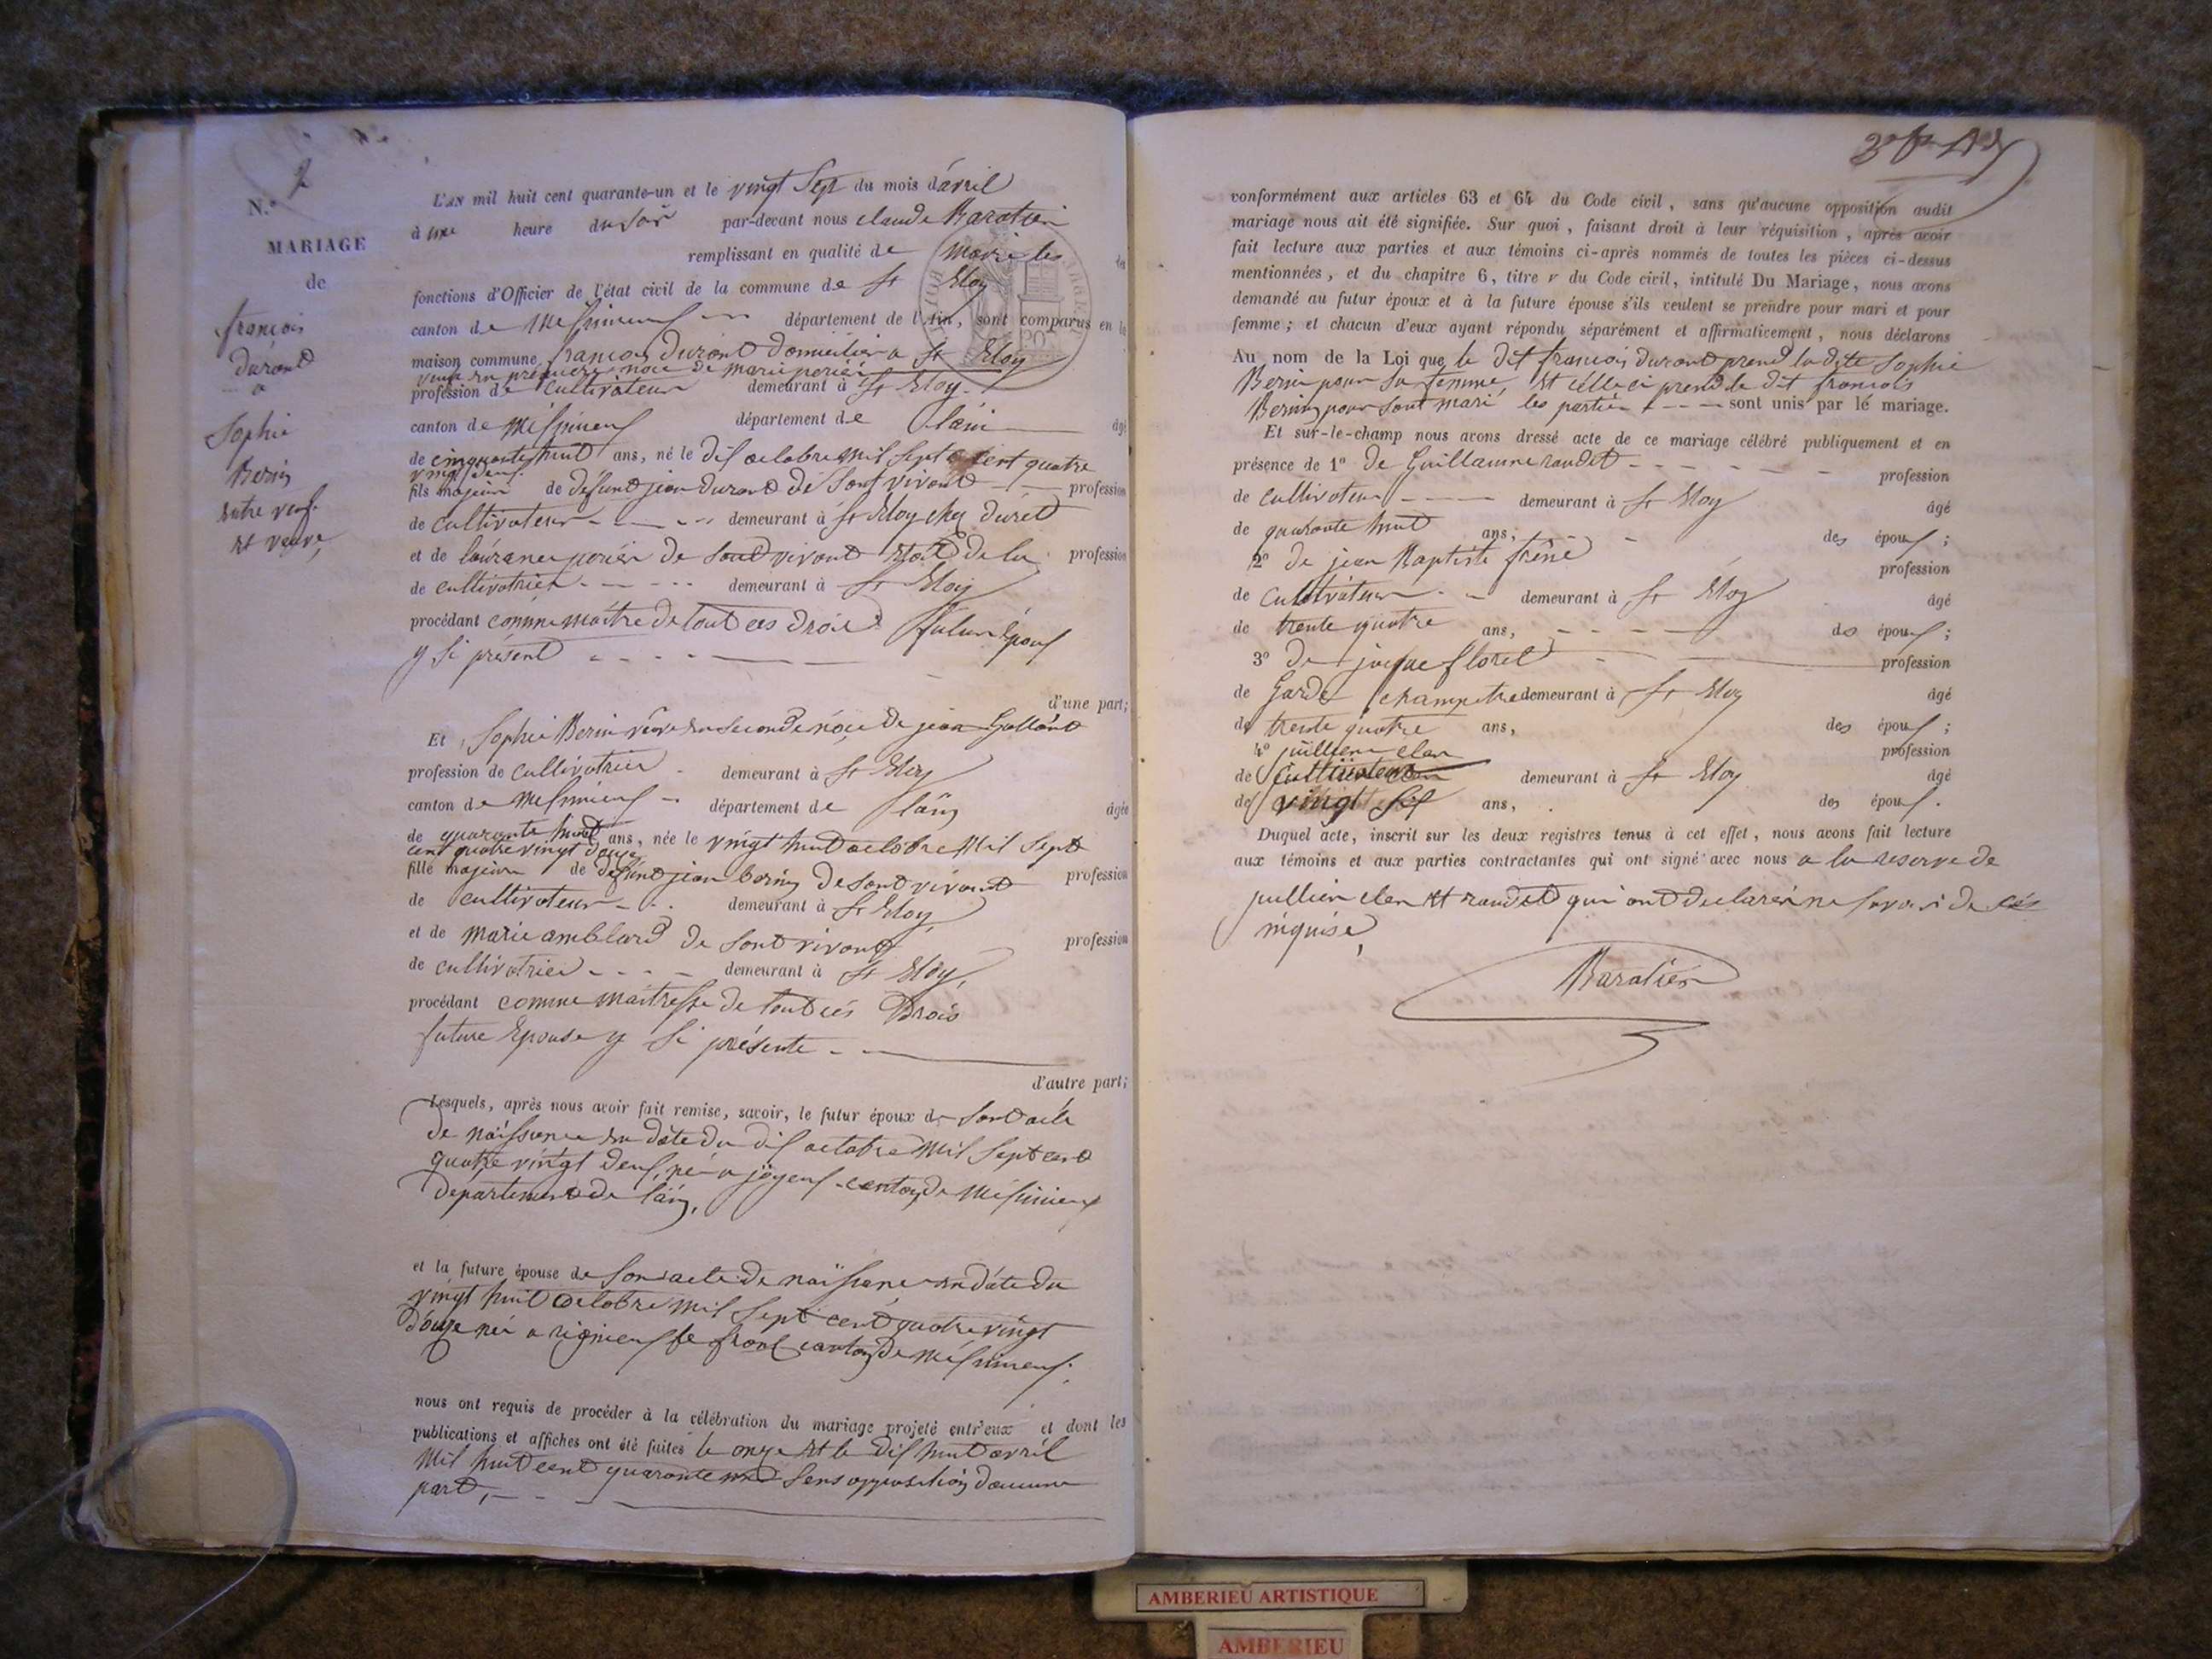 N.º 2
MARIAGE
de
françois
durant
a
Sophie
Berin
entre veuf
et veuve
L'AN mil huit cent quarante-un et le vingt Sept du mois d'avril
à une heure du Soir par-devant nous claude Baratier
remplissant en qualité de Maire les
fonctions d'Officier de l'état civil de la commune de St Eloy
canton de Meximieux département de l'Ain, sont comparus en la
maison commune françois durant domicilier a St Eloy
veuf en premiere noce de marie perier
profession de cultivateur demeurant à St Eloy
canton de Meximieux département de l'ain âgé
de cinquante huit ans, né le dix octobre mil sept cent quatre
vingt deux
fils majeur de defunt jean durant de Sont vivant profession
de cultivateur demeurant à St Eloy chez duret
et de perier de Sont vivant Etoit de la profession
de cultivatrice demeurant à St Eloy
procédant comme maitre de tout ces droit futur Epoux
y si présent
d'une part;
Et Sophie Berin veuve en seconde noce de jean Gallant
profession de cultivatrice demeurant à St Eloy
canton de Meximieux département de l'ain âgée
de quarante huit ans, née le vingt huit octobre Mil Sept
cent quatre vingt douze
fille majeure de defunt jean berin de Sont vivant profession
de cultivateur demeurant à St Eloy
et de Marie amblard de Sont vivant profession
de cultivatrice demeurant à St Eloy
procédant comme maitresse de tout ces Drois
future Epouse y si présente
d'autre part;
Lesquels, après nous avoir fait remise, savoir, le futur époux de Sont acte
de naissance en date du dix octobre Mil Sept cent
quatre vingt deux, né a joyeux canton de Meximieux
département de l'ain,
et la future épouse de Son acte de naissance en date du
vingt huit octobre mil Sept cent quatre vingt
douze née a rignieux le franc canton de Meximieux.
nous ont requis de procéder à la célébration du mariage projeté entr'eux et dont les
publications et affiches ont été faites le onze et le dix huit avril
Mil huit cent quarante un Sens opposition daucune
part,
conformément aux articles 63 et 64 du Code civil, sans qu'aucune opposition audit
mariage nous ait été signifiée. Sur quoi, faisant droit à leur réquisition, après avoir
fait lecture aux parties et aux témoins ci-après nommés de toutes les pièces ci-dessus
mentionnées, et du chapitre 6, titre V du Code civil, intitulé Du Mariage, nous avons
demandé au futur époux et à la future épouse s'ils veulent se prendre pour mari et pour
femme; et chacun d'eux ayant répondu séparément et affirmativement, nous déclarons
Au nom de la Loi que le dit françois durant prend la dite Sophie
Berin pour Sa femme, et celle ci prend le dit françois
Berin pour Sont mari les partier sont unis par le mariage.
Et sur-le-champ nous avons dressé acte de ce mariage célébré publiquement et en
présence de 1º de Guillaume raudet profession
de cultivateur demeurant à St Eloy âgé
de quarante huit ans, des époux;
2º de jean Baptiste profession
de Cultivateur demeurant à St Eloy âgé
de trente quatre ans, des époux;
3º de floret profession
de Garde champetre demeurant à St Eloy âgé
de trente quatre ans, des époux;
4º jullien cler profession
de cultivateur demeurant à St Eloy âgé
de vingt Six ans, des époux.
Duquel acte, inscrit sur les deux registres tenus à cet effet, nous avons fait lecture
aux témoins et aux parties contractantes qui ont signé avec nous a la reserve de
jullien cler et raudet qui ont declarer ne Savoir de
réquise,
Baratier
AMBERIEU ARTISTIQUE
AMBERIEU